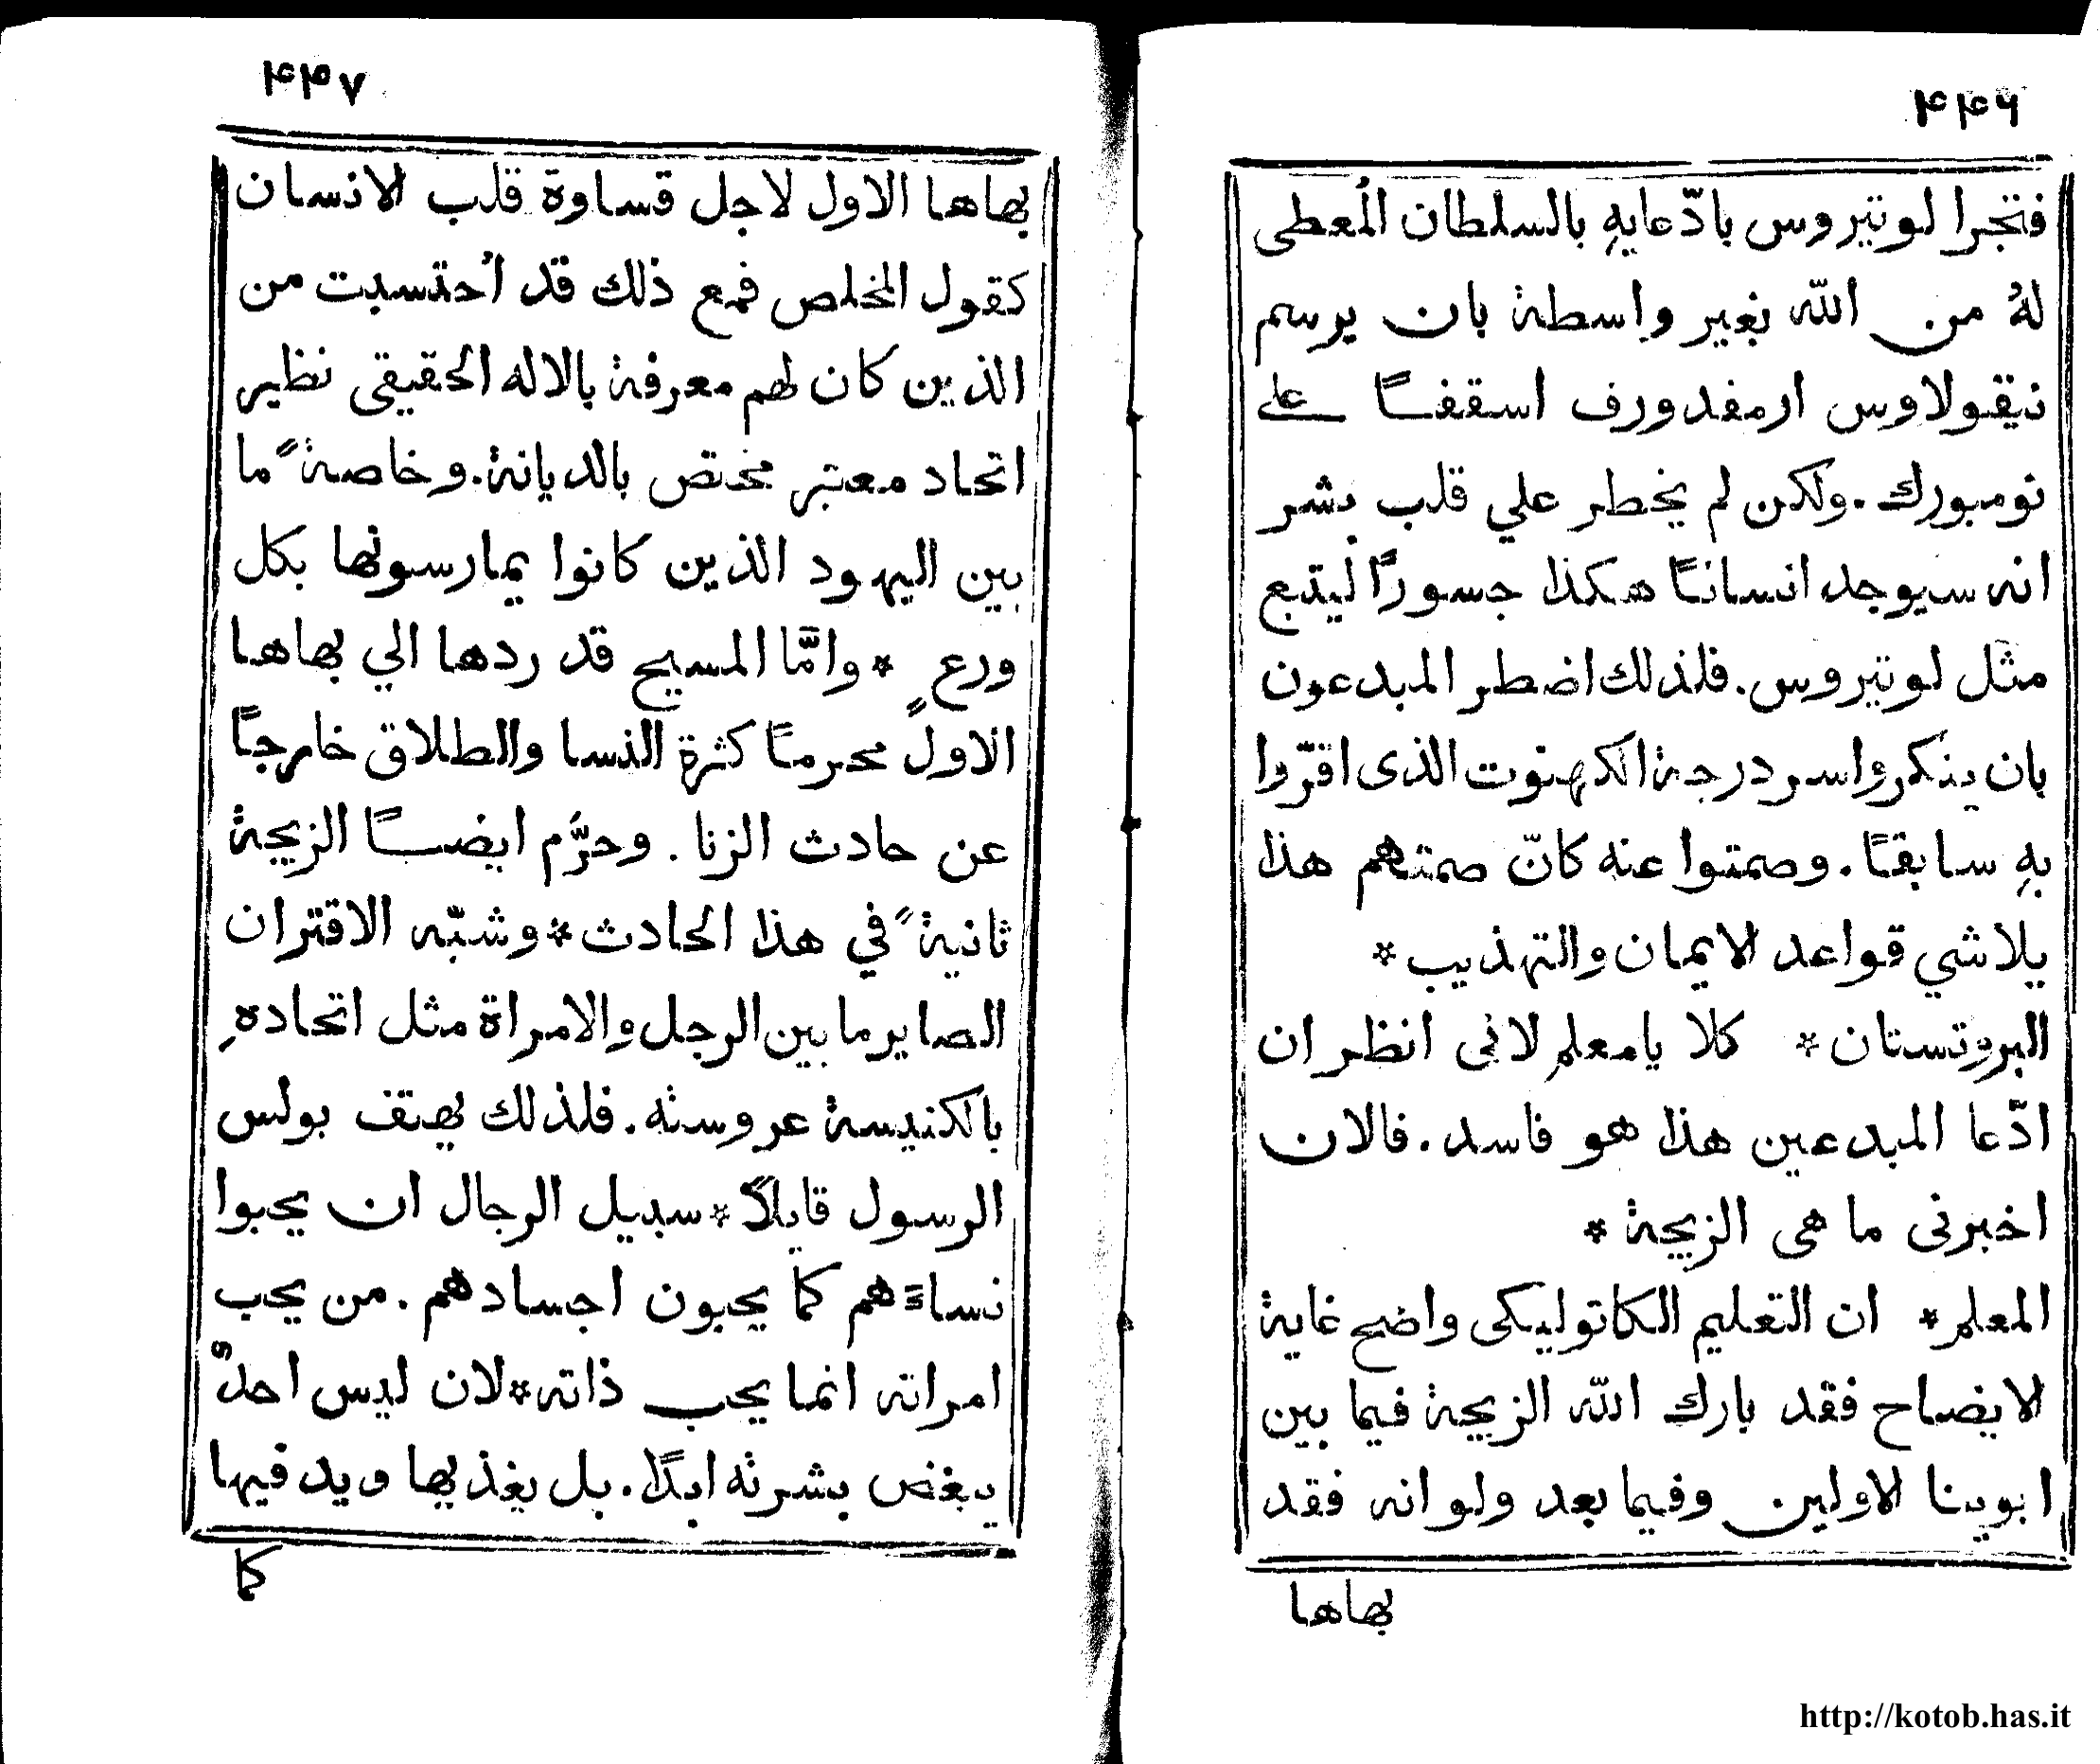 ٤٤٦
فتجرا لوتيروس بادّعايهِ بالسلطان المُعطى
لهُ من الله بغير واسطة بان يرسم
نيقولاوس ارمفدورف اسقفًا على
نومبورك. ولكن لم يخطر علي قلب بشر
انه سيوجد انسانًا هكذا جسورًا ليتبع
مثل لوتيروس. فلذلك اضطر المبدعون
بان ينكروا سر درجة الكهنوت الذى اقرّوا
بهِ سابقًا. وصمتوا عنه كانّ صمتهم هذا
يلاشي قواعد الايمان والتهذيب *
البروتستان * كلا يا معلم لانى انظر ان
ادّعا المبدعين هذا هو فاسد. فالان
اخبرنى ما هى الزيجة *
المعلم * ان التعليم الكاتوليكى واضح غاية
الايضاح فقد بارك الله الزيجة فيما بين
ابوينا الاولين وفيما بعد ولو انه فقد
بهاها
٤٤٧
بهاها الاول لاجل قساوة قلب الانسان
كقول المخلص فمع ذلك قد اُحتسبت من
الذين كان لهم معرفة بالاله الحقيقى نظير
اتحاد معتبر مختص بالديانة. وخاصةً ما
بين اليهود الذين كانوا يمارسونها بكل
ورعٍ * وامَّا المسيح قد ردها الي بهاها
الاول محرمًا كثرة النسا والطلاق خارجًا
عن حادث الزنا. وحرَّم ايضًا الزيجة
ثانيةً في هذا الحادث * وشبّه الاقتران
الصاير ما بين الرجل والامراة مثل اتحادهِ
بالكنيسة عروسته. فلذلك يهتف بولس
الرسول قايلاً * سبيل الرجال ان يحبوا
نساءَهم كما يحبون اجسادهم. من يحب
امراته انما يحب ذاته * لان ليس احدٌ
يبغض بشرته ابدًا. بل يغذيها ويدفيها
كما
http://kotob.has.it